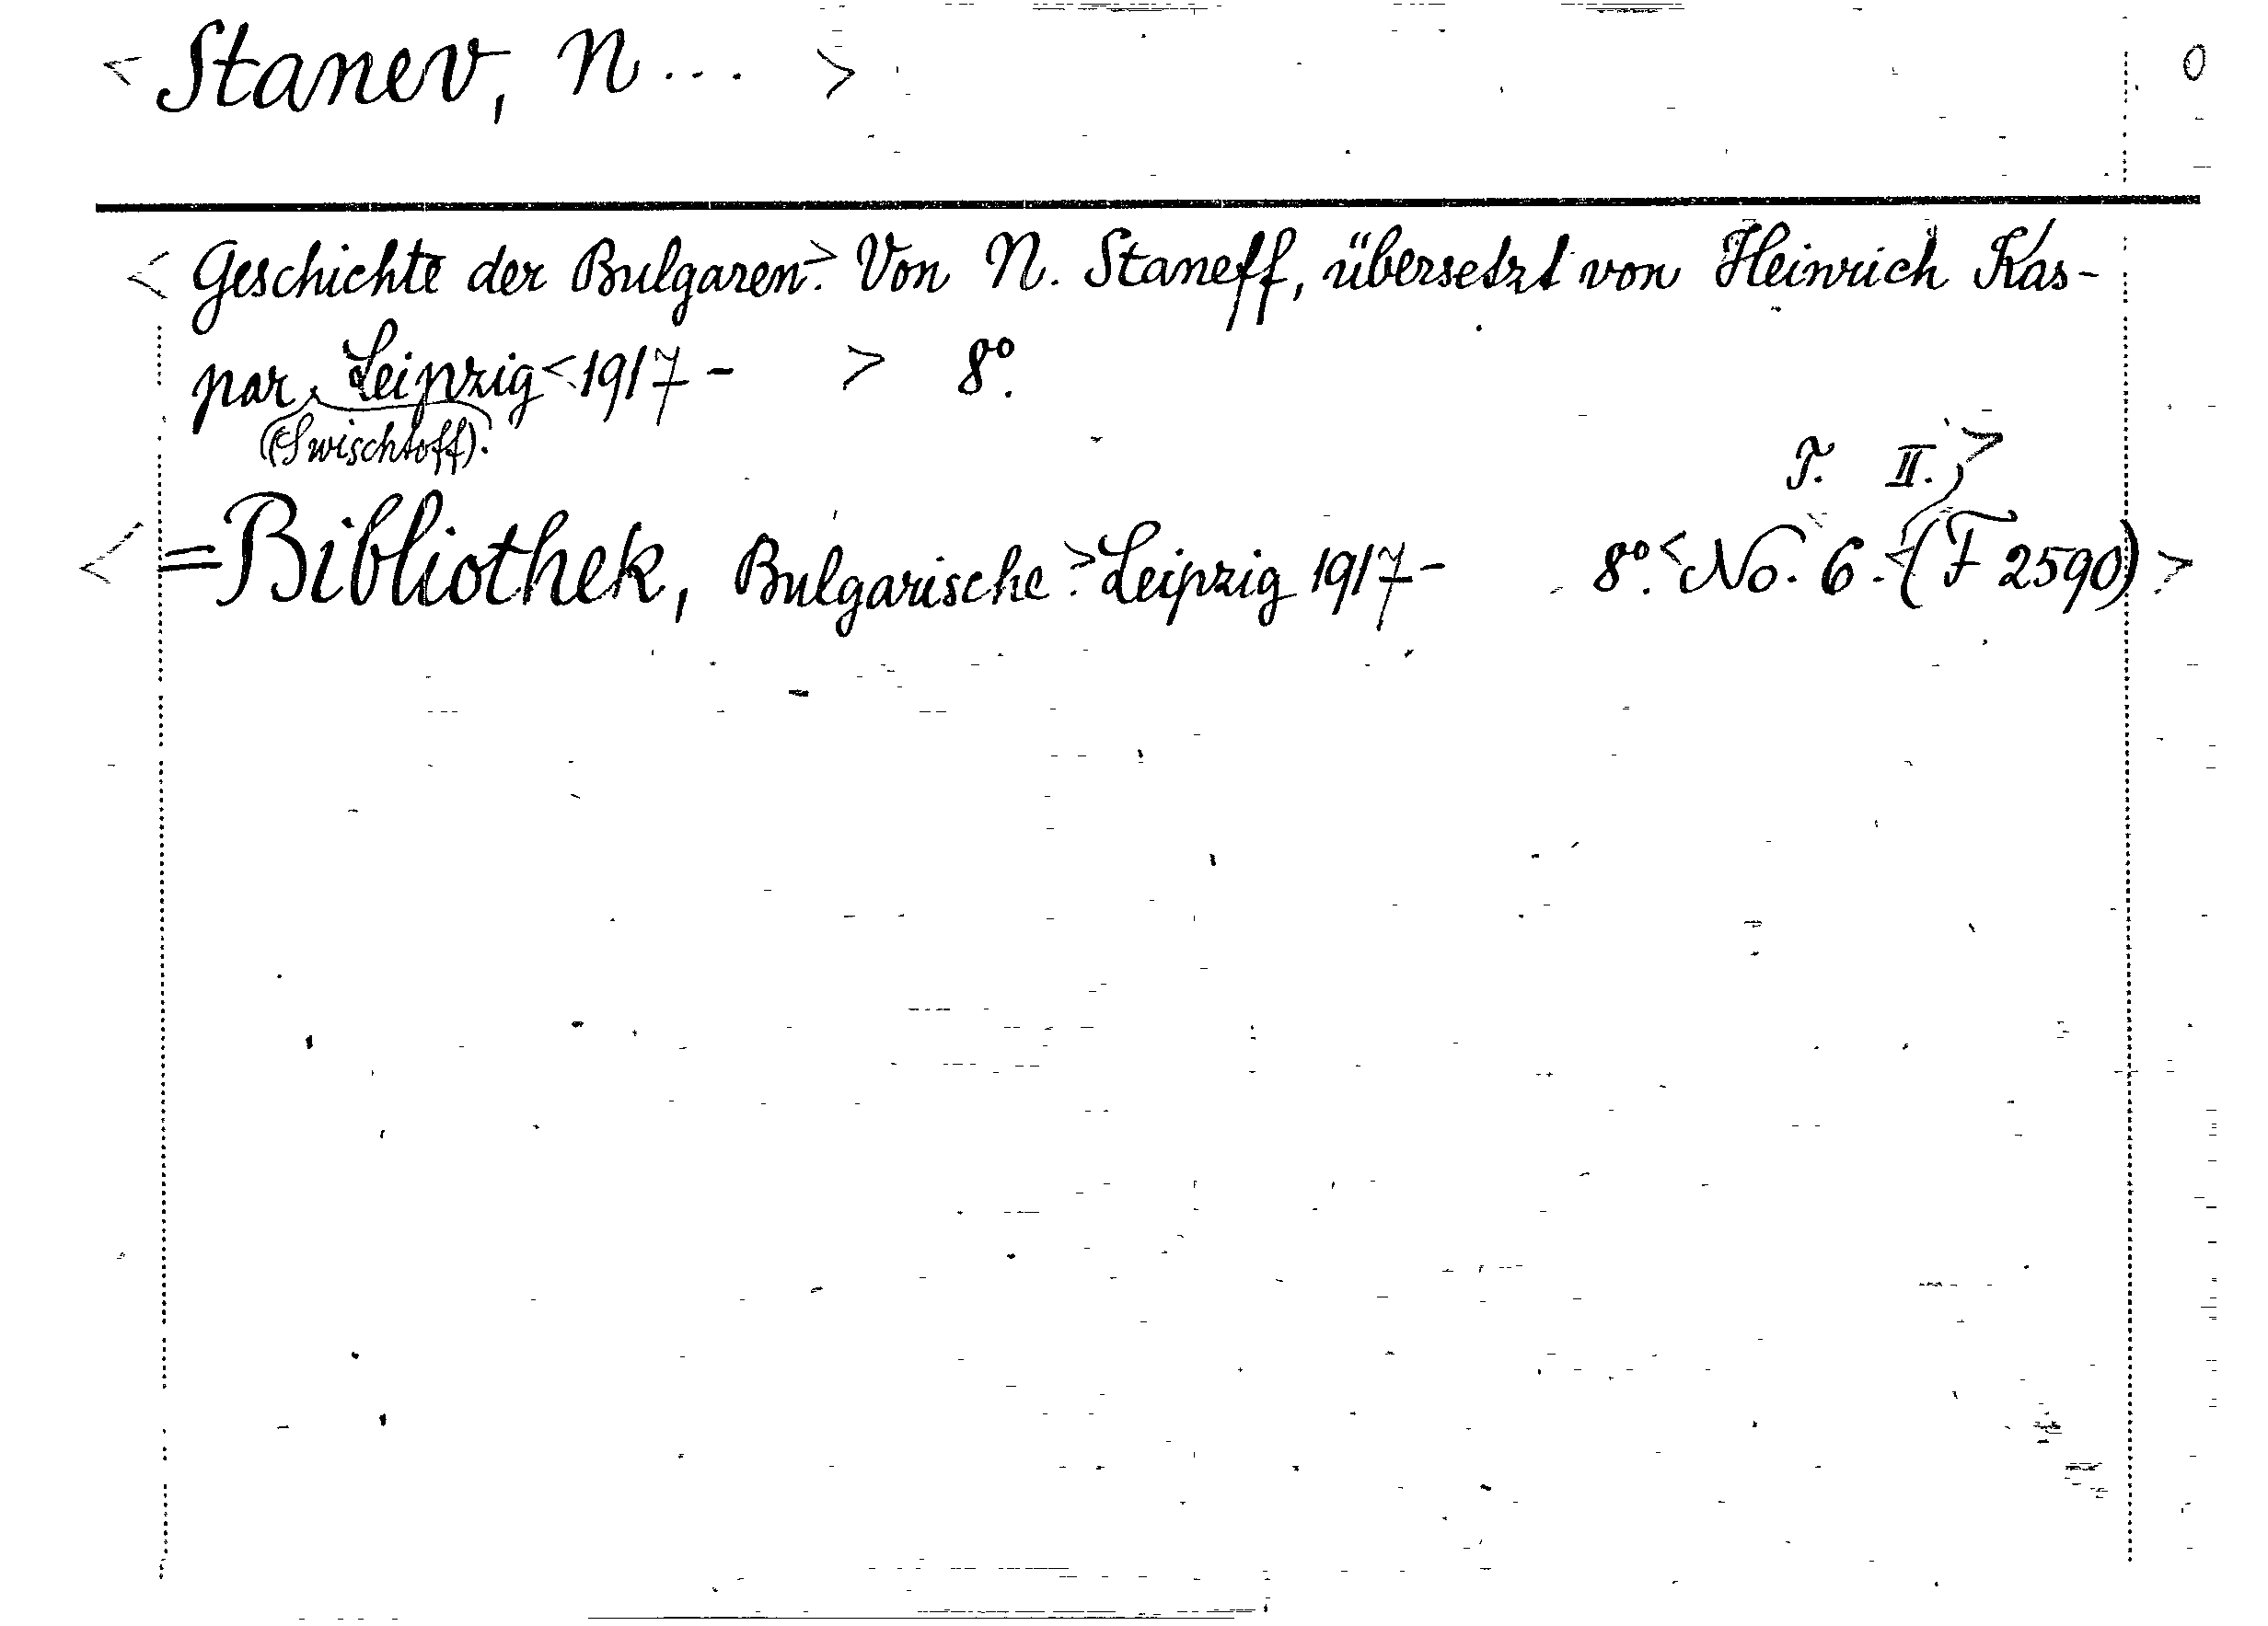 < Stanev, N... > 0
< Geschichte der Bulgaren.> Von N. Staneff, übersetzt von Heinrich Kas-
par. Leipzig <1917- > 8°.
(Swischtoff).
T. II.>
< =Bibliothek, Bulgarische.> Leipzig 1917- 8°. <No. 6. <(F 2590) >